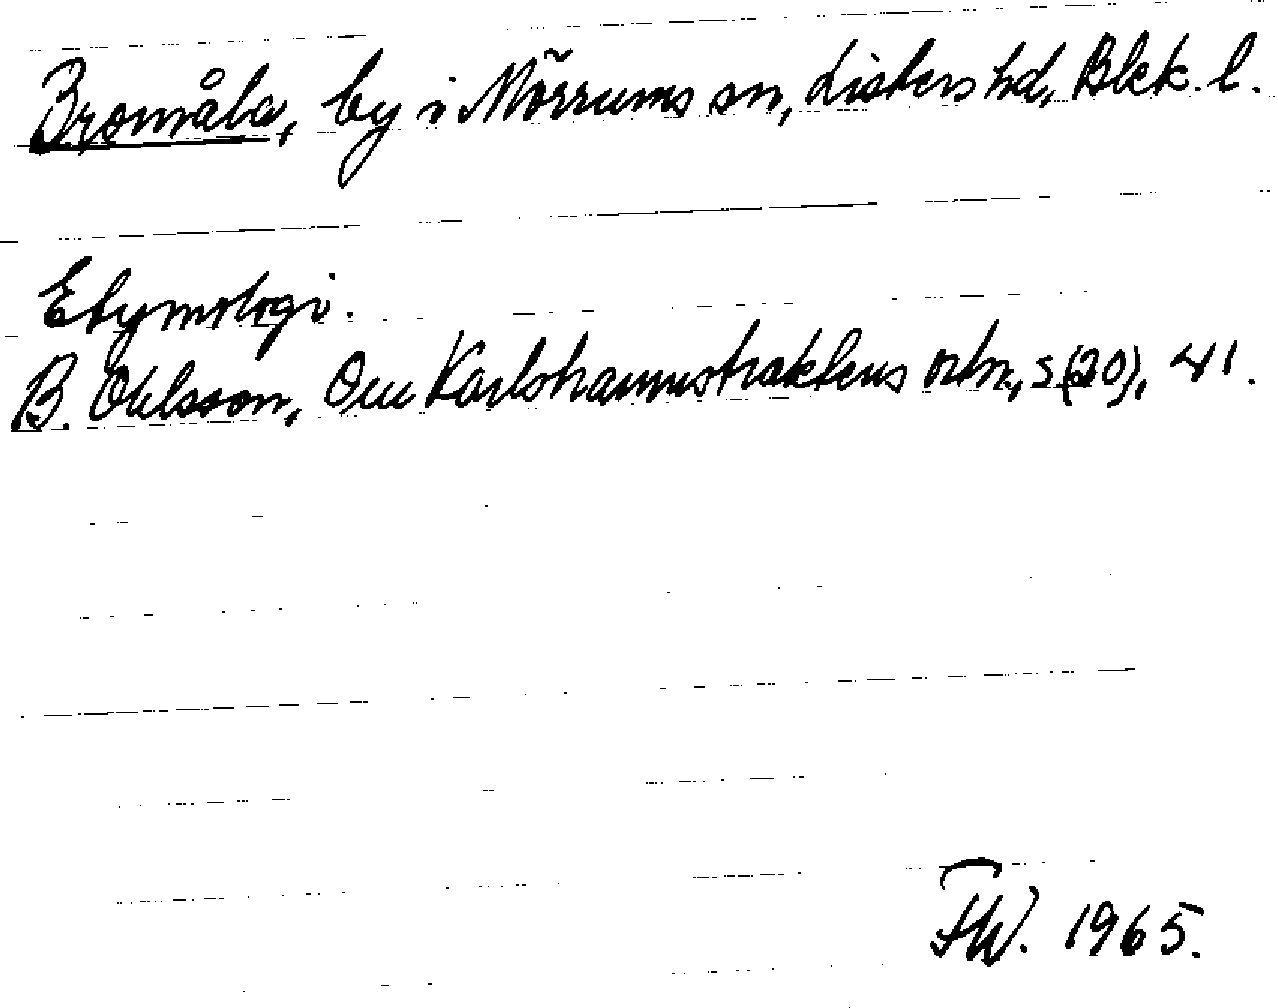 Bromåla, by i Mörrums sn, Listers hd, Blek. l.
Etymologi.
B. Ohlsson, Om Karlshamnstraktens ortn, s (20), 41.
FW. 1965.